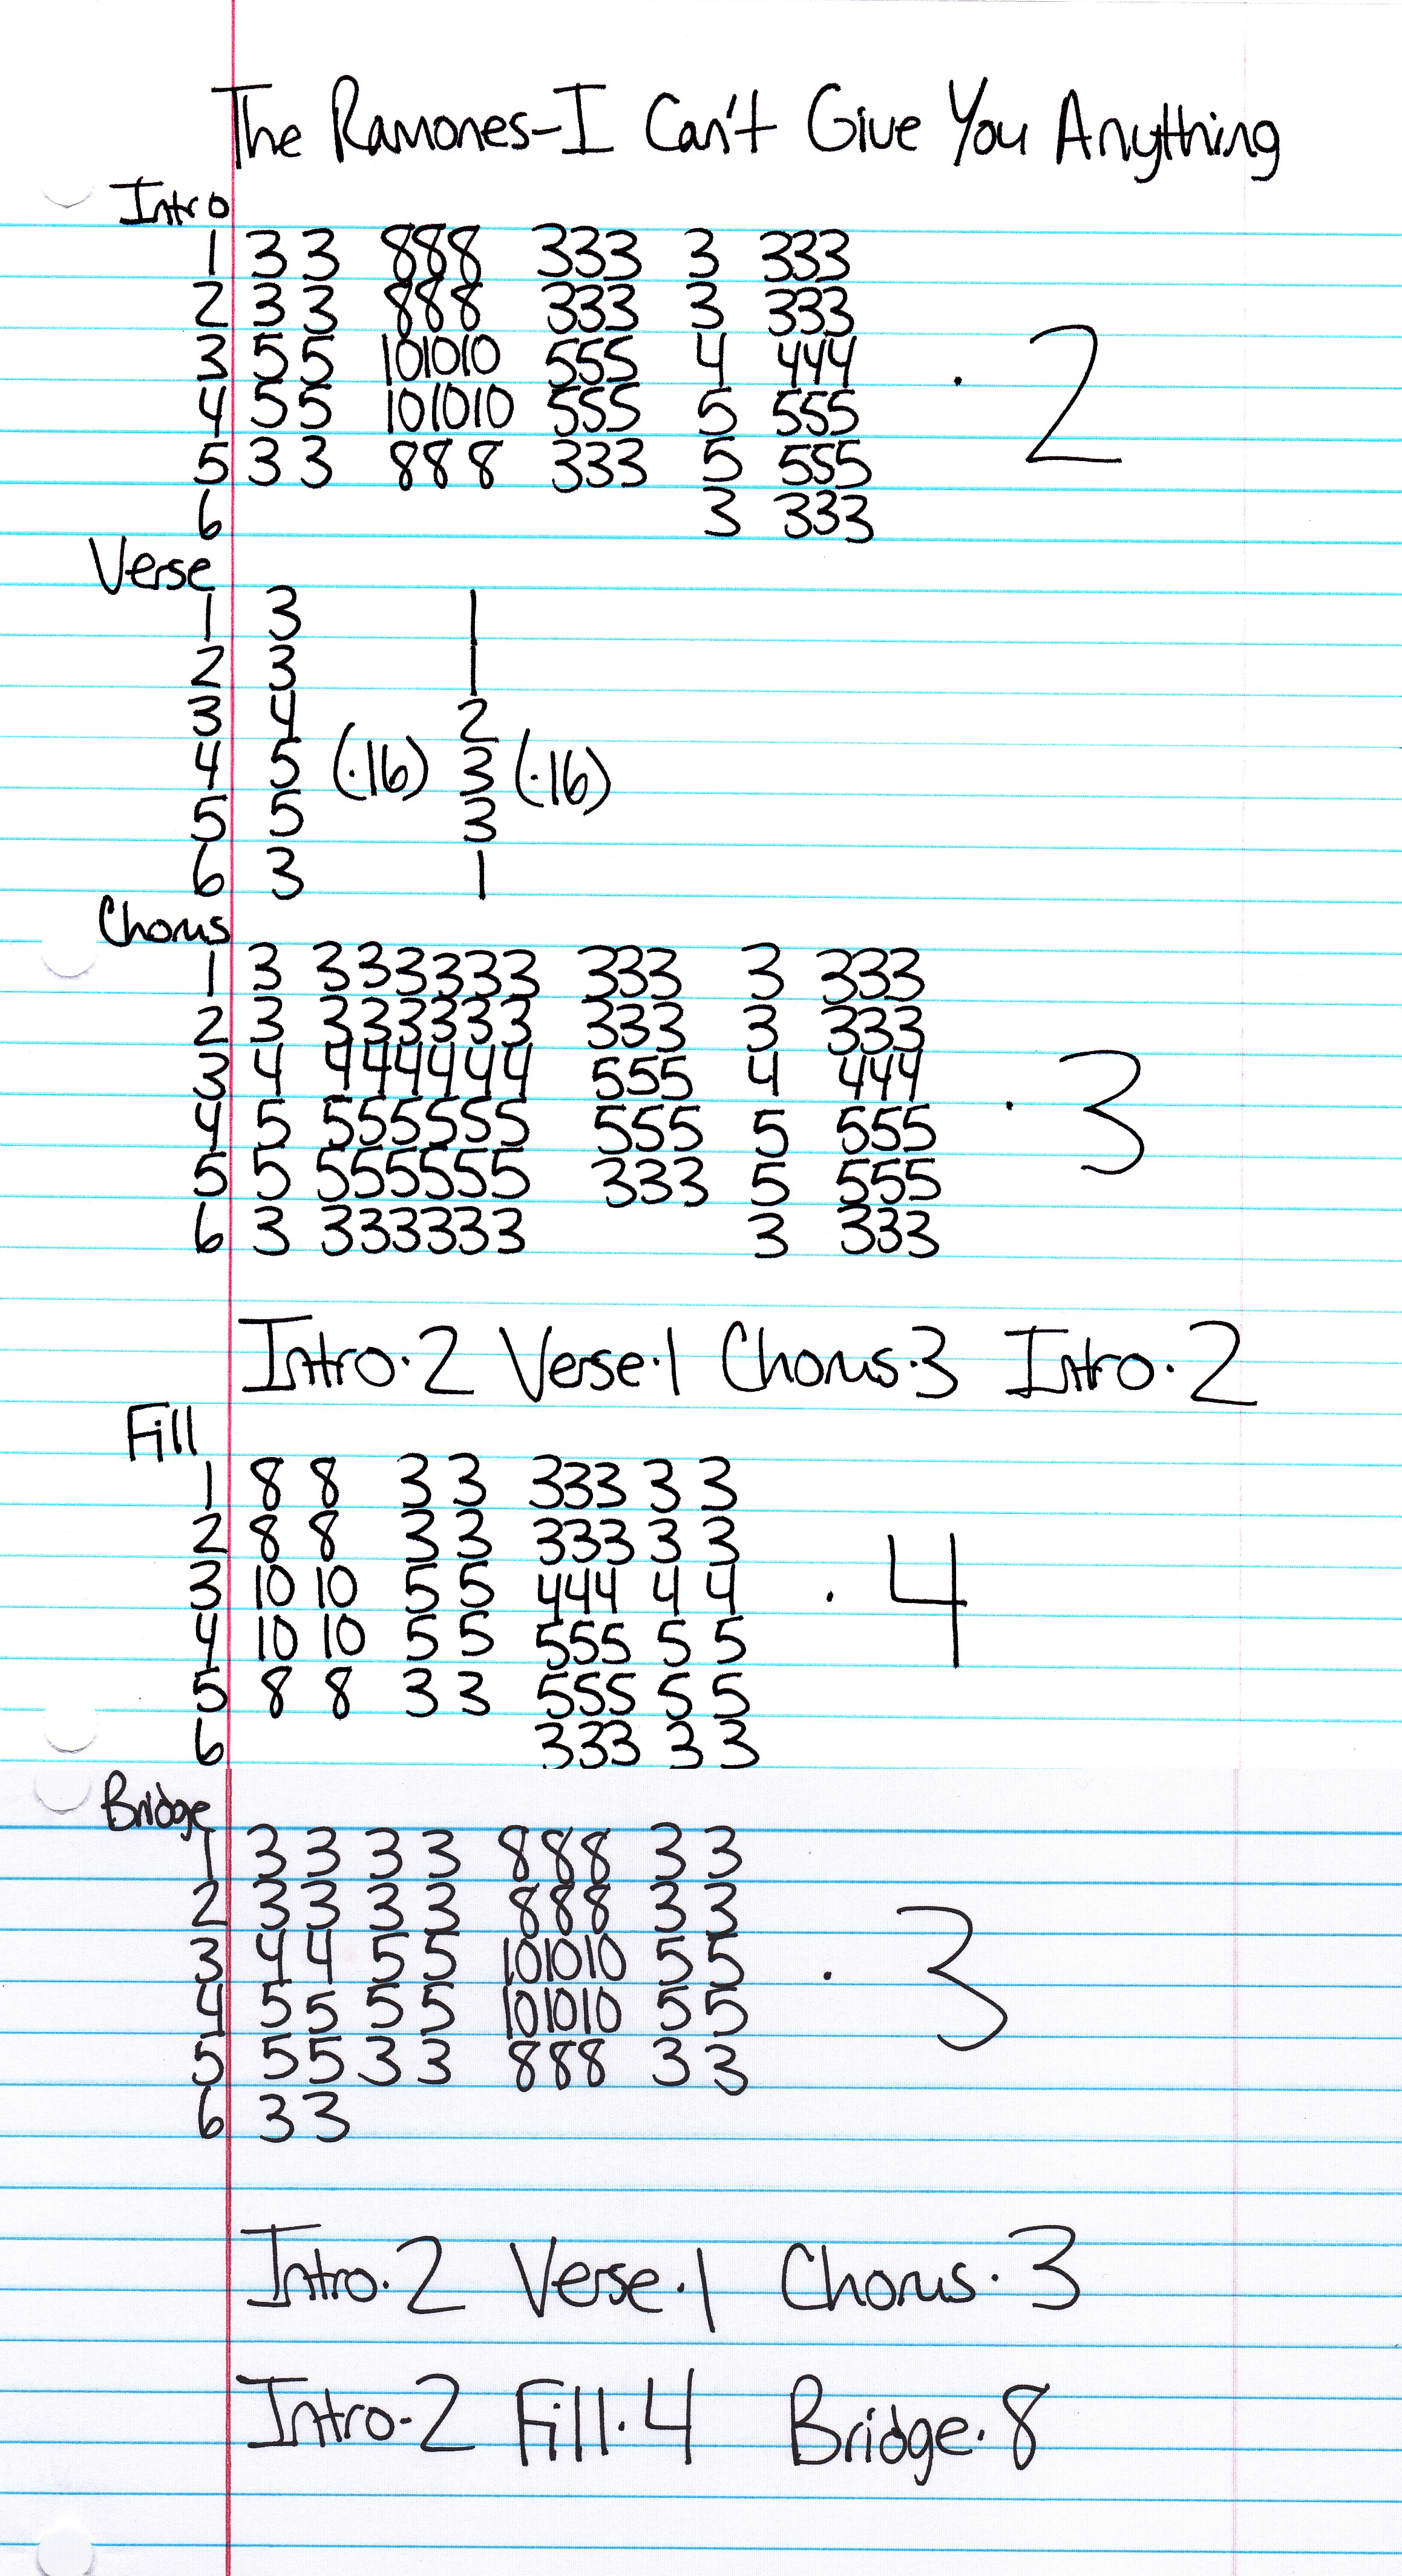 The Ramones-I Can't Give You Anything
Intro
1 3 3 888 333 3 333
2 3 3 888 333 3 333
3 5 5 101010 555 4 444
4 5 5 101010 555 5 555
5 3 3 888 333 5 555
6 3 333
· 2
Verse
1 3 1
2 3 1
3 4 2
4 5 (·16) 3 (·16)
5 5 3
6 3 1
Chorus
1 3 333333 333 3 333
2 3 333333 333 3 333
3 4 444444 555 4 444
4 5 555555 555 5 555
5 5 555555 333 5 555
6 3 333333 3 333
· 3
Intro·2 Verse·1 Chorus·3 Intro·2
Fill
1 8 8 3 3 333 3 3
2 8 8 3 3 333 3 3
3 10 10 5 5 444 4 4
4 10 10 5 5 555 5 5
5 8 8 3 3 555 5 5
6 333 3 3
· 4
Bridge
1 3 3 3 3 888 3 3
2 3 3 3 3 888 3 3
3 4 4 5 5 101010 5 5
4 5 5 5 5 101010 5 5
5 5 5 3 3 888 3 3
6 3 3
· 3
Intro·2 Verse·1 Chorus·3
Intro·2 Fill·4 Bridge·8